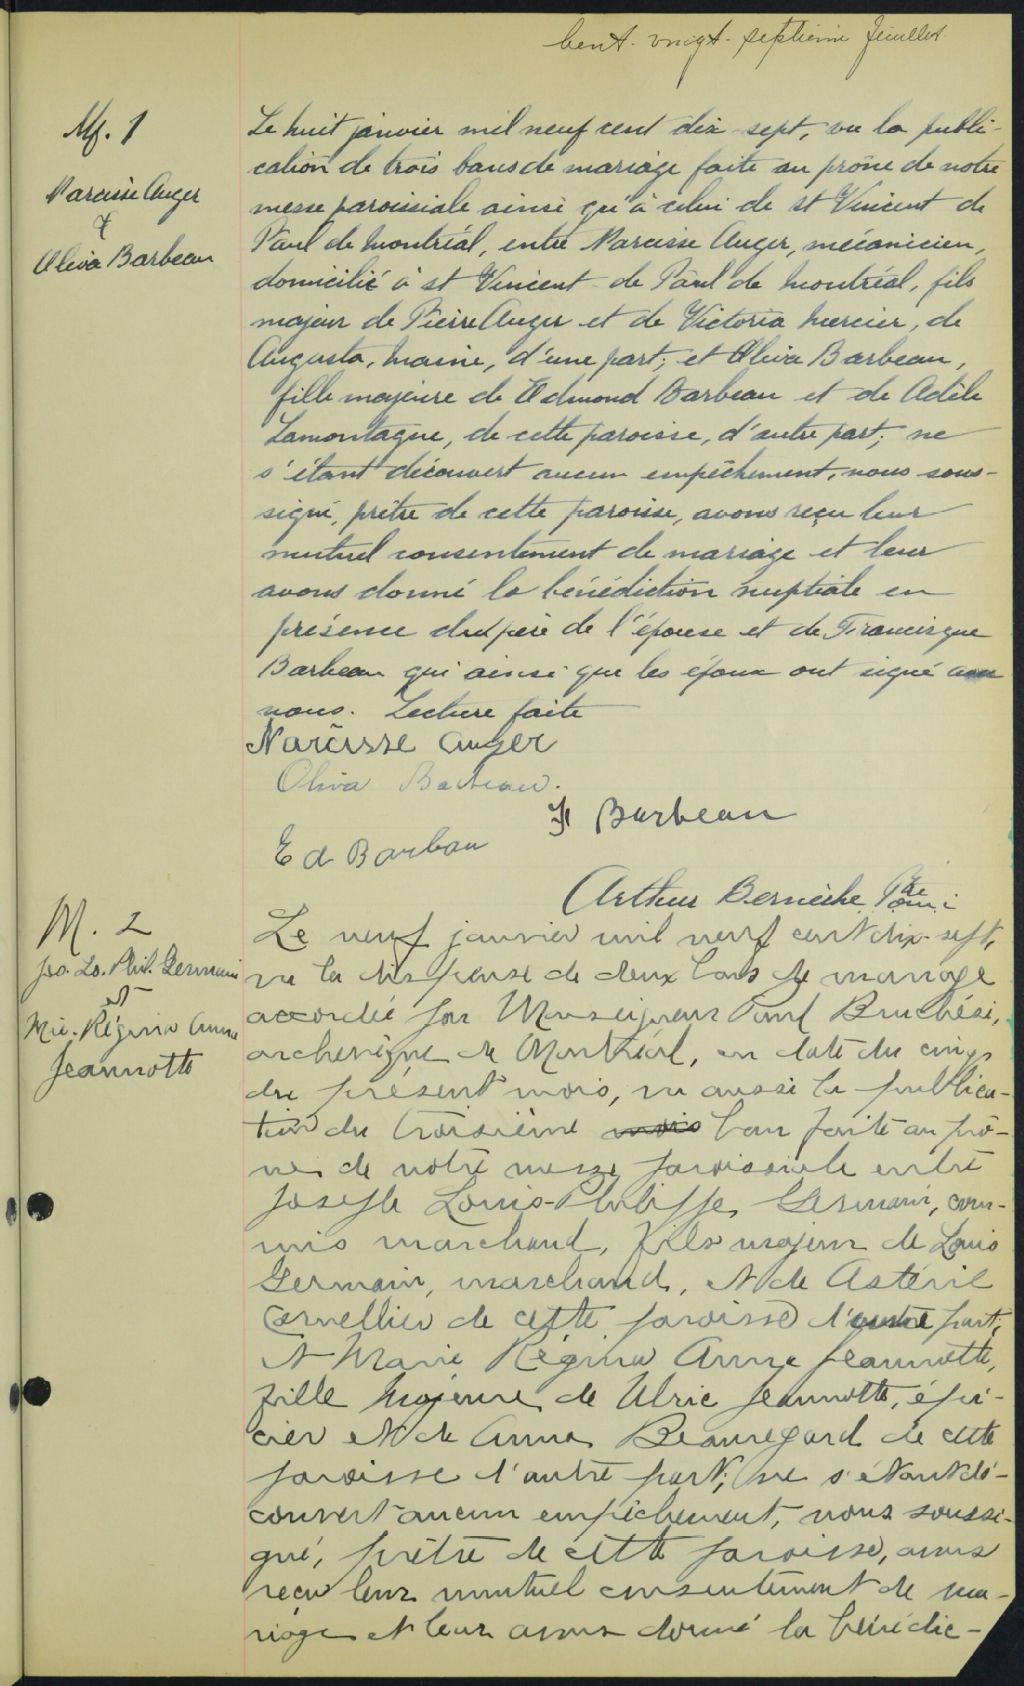 Cent-vingt-septième feuillet
M. 1
Narcisse Auger
&
Oliva Barbeau
Le huit janvier mil neuf cent dix-sept, vu la publi-
cation de trois bans de mariage faite au prône de notre
messe paroissiale ainsi qu'à celui de st Vincent de
Paul de Montréal, entre Narcisse Auger, mécanicien,
domicilié à st Vincent-de Paul de Montréal, fils
majeur de Pierre Auger et de Victoria Mercier, de
Augusta, Maine, d'une part; et Oliva Barbeau,
fille majeure de Edmond Barbeau et de Adèle
Lamontagne, de cette paroisse, d'autre part; ne
s'étant découvert aucun empêchement, nous sous-
signé, prêtre de cette paroisse, avons reçu leur
mutuel consentement de mariage et leur
avons donné la bénédiction nuptiale en
présence du père de l'épouse et de Francisque
Barbeau qui ainsi que les époux ont signé avec
nous. Lecture faite
Narcisse Auger
Oliva Barbeau.
F Barbeau
Ed Barbeau
Arthur Berniche Ptre
M. 2
Jos. Ls. Phil. Germain
et
Mie. Régina Anna
Jeannotte
Le neuf janvier mil neuf cent dix-sept,
vu la dispense de deux bans de mariage
accordée par Monseigneur Paul Bruchési,
archevêque de Montréal, en date du cinq
du présent mois, vu aussi la publica-
tion du troisième mois ban faite au prô-
ne de notre messe paroissiale entre
Joseph Louis-Philippe Germain, com-
mis marchand, fils majeur de Louis
Germain, marchand, et de Astérie
Cornellier de cette paroisse d'autre part;
et Marie Régina Anna Jeannotte,
fille majeure de Ulric Jeannotte, épi-
cier et de Anna Beauregard de cette
paroisse d'autre part; ne s'étant dé-
couvert aucun empêchement, nous soussi-
gné, prêtre de cette paroisse, avons
reçu leur mutuel consentement de ma-
riage et leur avons donné la bénédic-